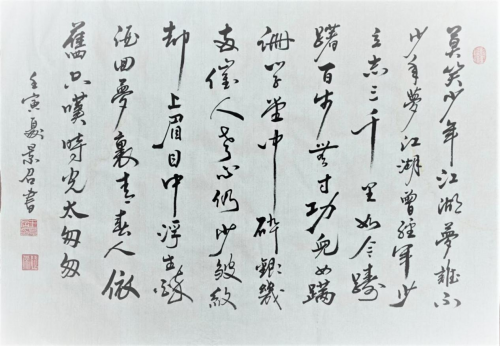 莫笑少年江湖夢誰不
少年夢江湖曾經年少
立志三千里如今躊
躇百步無寸功兒女蹣
跚學堂中碎銀幾
兩催人老心仍少皺紋
却上眉目中浮生醉
酒回夢裏青春人依
舊只嘆時光太匆匆
壬寅夏景召書